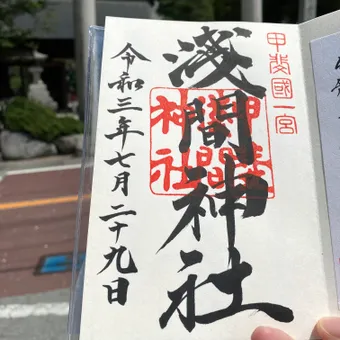 甲斐國一宮
淺間神社
淺間神社
令和三年七月二十九日